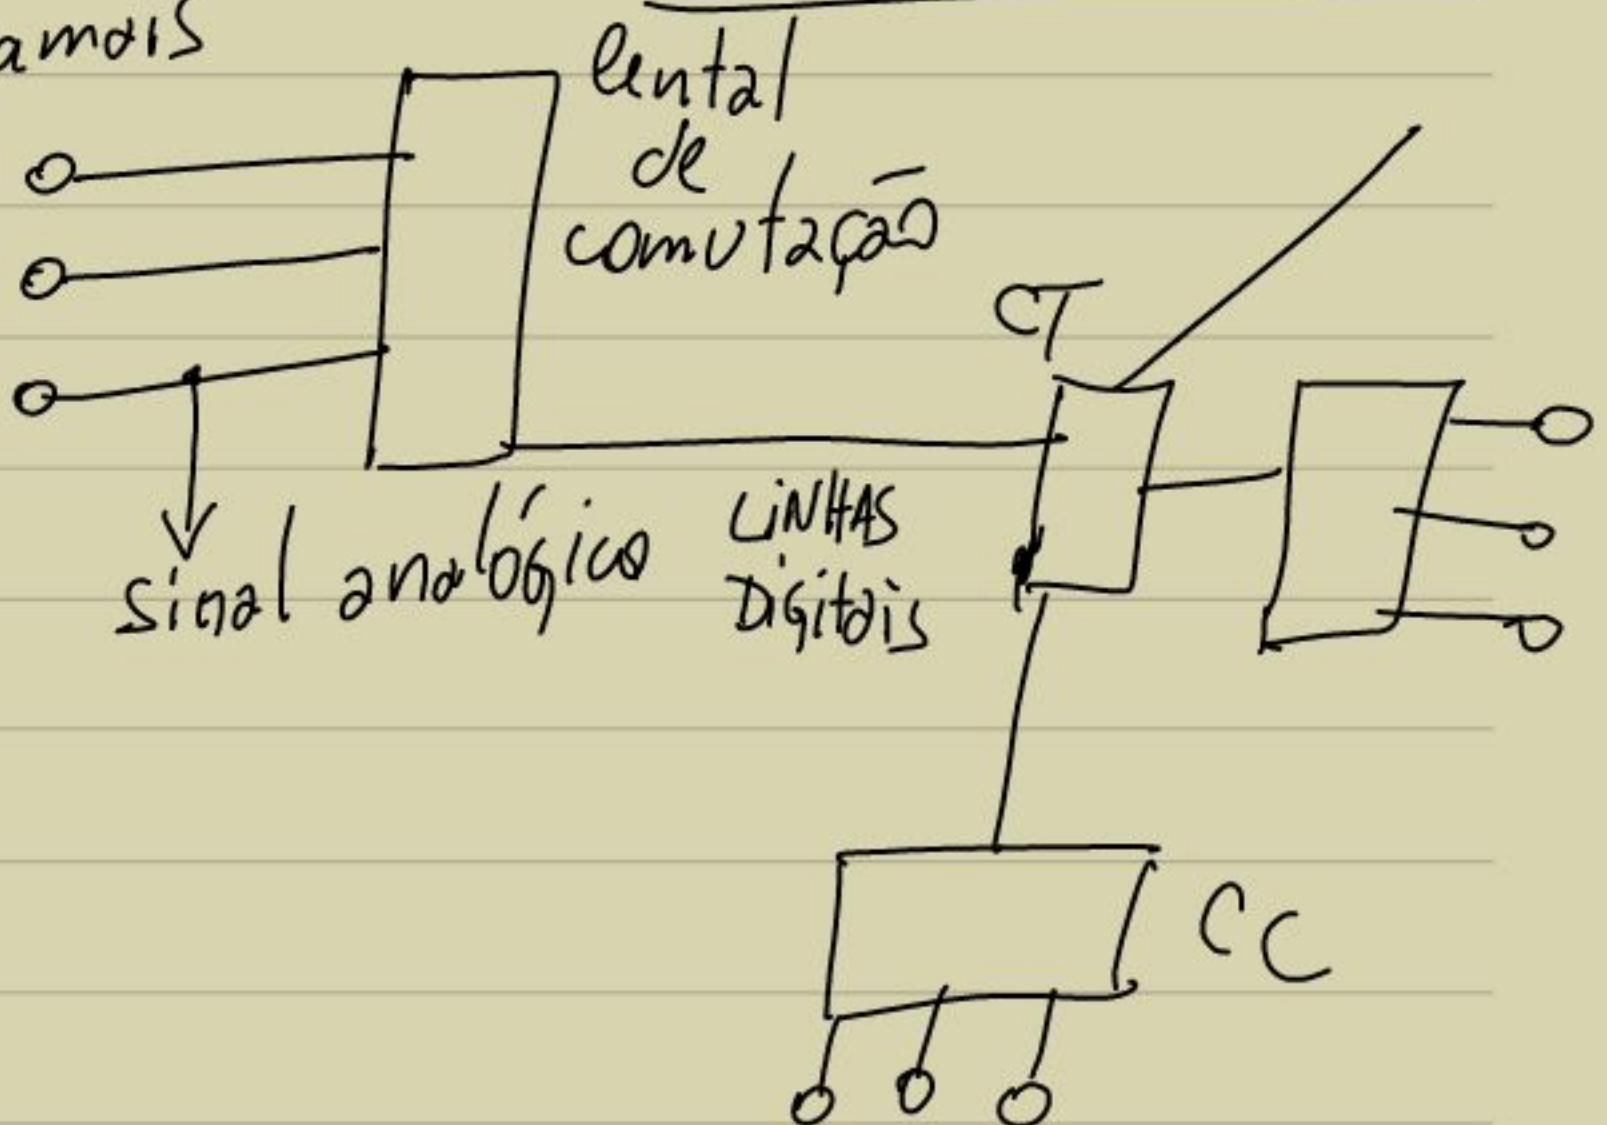 amais
Cental
de
comutação
CT
sinal analógico
LiNHAS
Digitais
CC